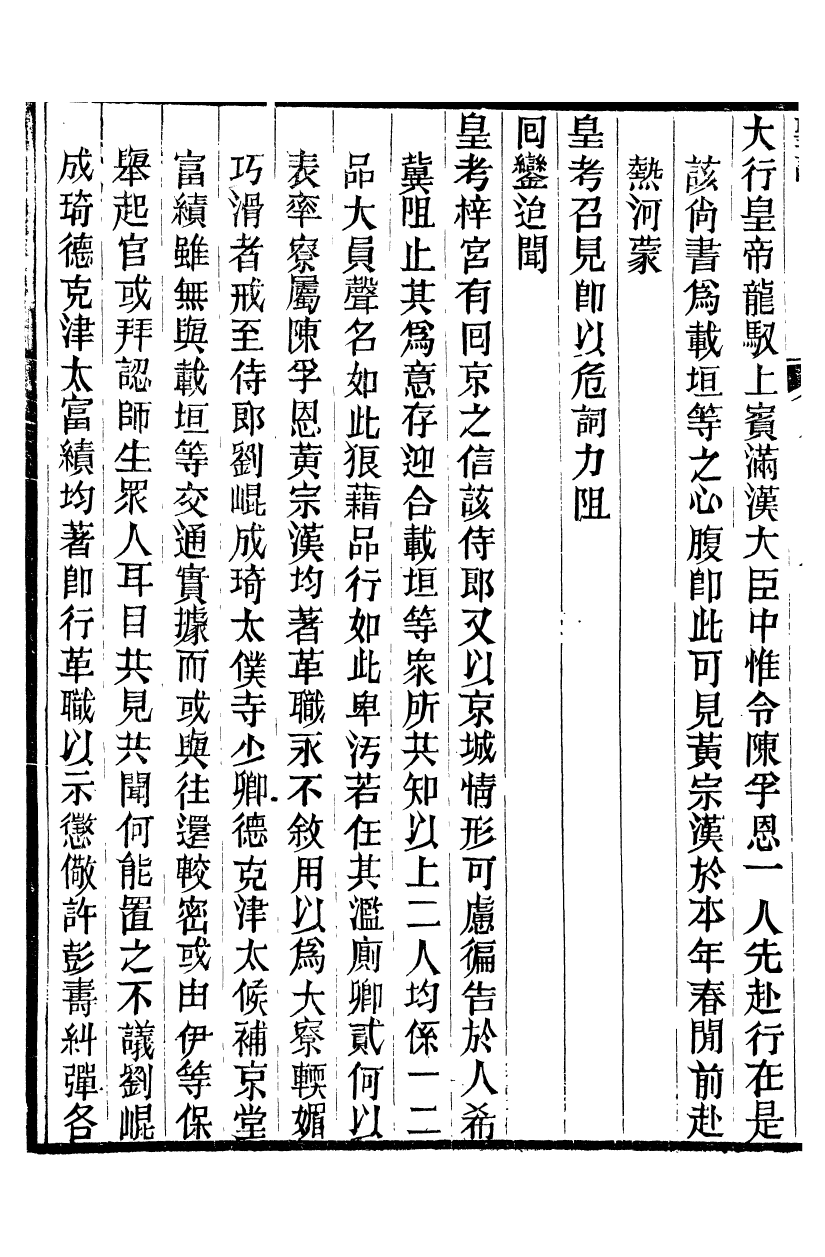 大行皇帝龍馭上賓滿漢大臣中惟令陳孚恩一人先赴行在是
該尙書爲載垣等之心腹卽此可見黃宗漢於本年春閒前赴
熱河蒙
皇考召見卽以危詞力阻
回鑾迨聞
皇考梓宮有回京之信該侍郎又以京城情形可慮徧告於人希
冀阻止其爲意存迎合載垣等衆所共知以上二人均係一二
品大員聲名如此狼藉品行如此卑污若任其濫廁卿貳何以
表率寮屬陳孚恩黃宗漢均著革職永不敘用以爲大寮輭媚
巧滑者戒至侍郎劉崐成琦太僕寺少卿德克津太候補京堂
富績雖無與載垣等交通實據而或與往還較密或由伊等保
舉起官或拜認師生眾人耳目共見共聞何能置之不議劉崐
成琦德克津太富績均著卽行革職以示懲儆許彭壽糾彈各